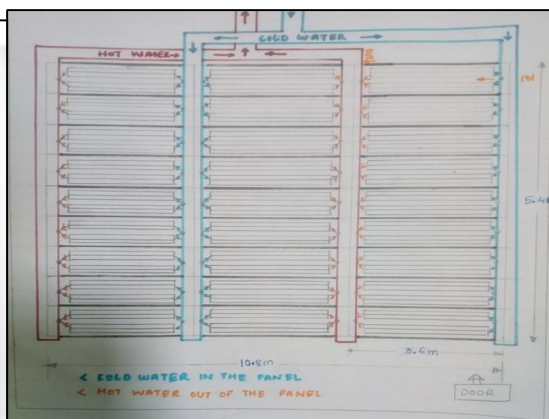 COLD WATER
HOT WATER
10.8m
3.6m
< COLD WATER IN THE PANEL
< HOT WATER OUT OF THE PANEL
DOOR